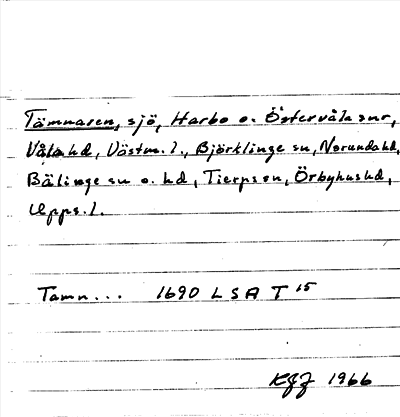 Tämnaren, sjö, Harbo o. Östervåla snr,
Våla hd, Västm. l., Björklinge sn, Norunda hd,
Bälinge sn o. hd, Tierps sn, Örbyhus hd,
Upps. l.
Tamn... 1690 LSA T 15
KGJ 1966